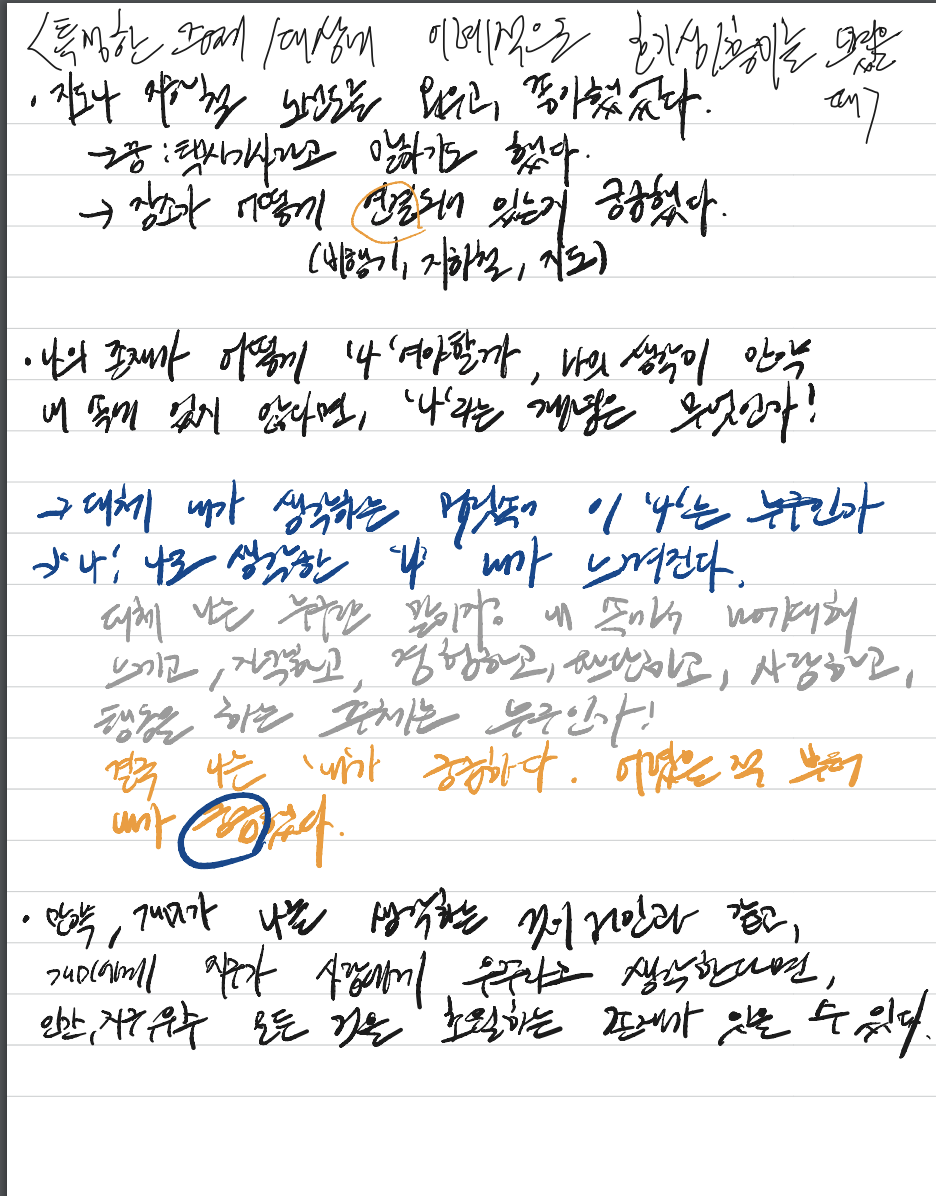 <특정한 주제 /대상에 이례적으로 호기심/흥미를 느꼈을
때>
· 지도나 지하철 노선도를 외우고, 좋아했었다.
→ 꿈 : 택시기사라고 말하기도 했다.
→ 장소가 어떻게 연결되어 있는지 궁금했다.
(비행기, 지하철, 지도)
· 나의 존재가 어떻게 '나'여야할까, 나의 생각이 만약
내 뜻에 있지 않다면, '나'라는 개념은 무엇인가!
→ 대체 내가 생각하는 머릿속에 이 '나'는 누구인가
→ '나', 나로 생각한 '나' 내가 느껴진다.
대체 나는 누구란 말이지? 내 속에서 무언가에 대해
느끼고, 지각하고, 경험하고, 판단하고, 사랑하고,
행동을 하는 주체는 누구인가!
결국 나는 '내'가 궁금하다. 어렸을 적 부터
내가 궁금했다.
· 만약, 개미가 나를 생각하는 것이 거인과 같고,
개미에게 지구가 사람에게 우주라고 생각한다면,
인간, 지구, 우주 모든 것을 초월하는 존재가 있을 수 있다.